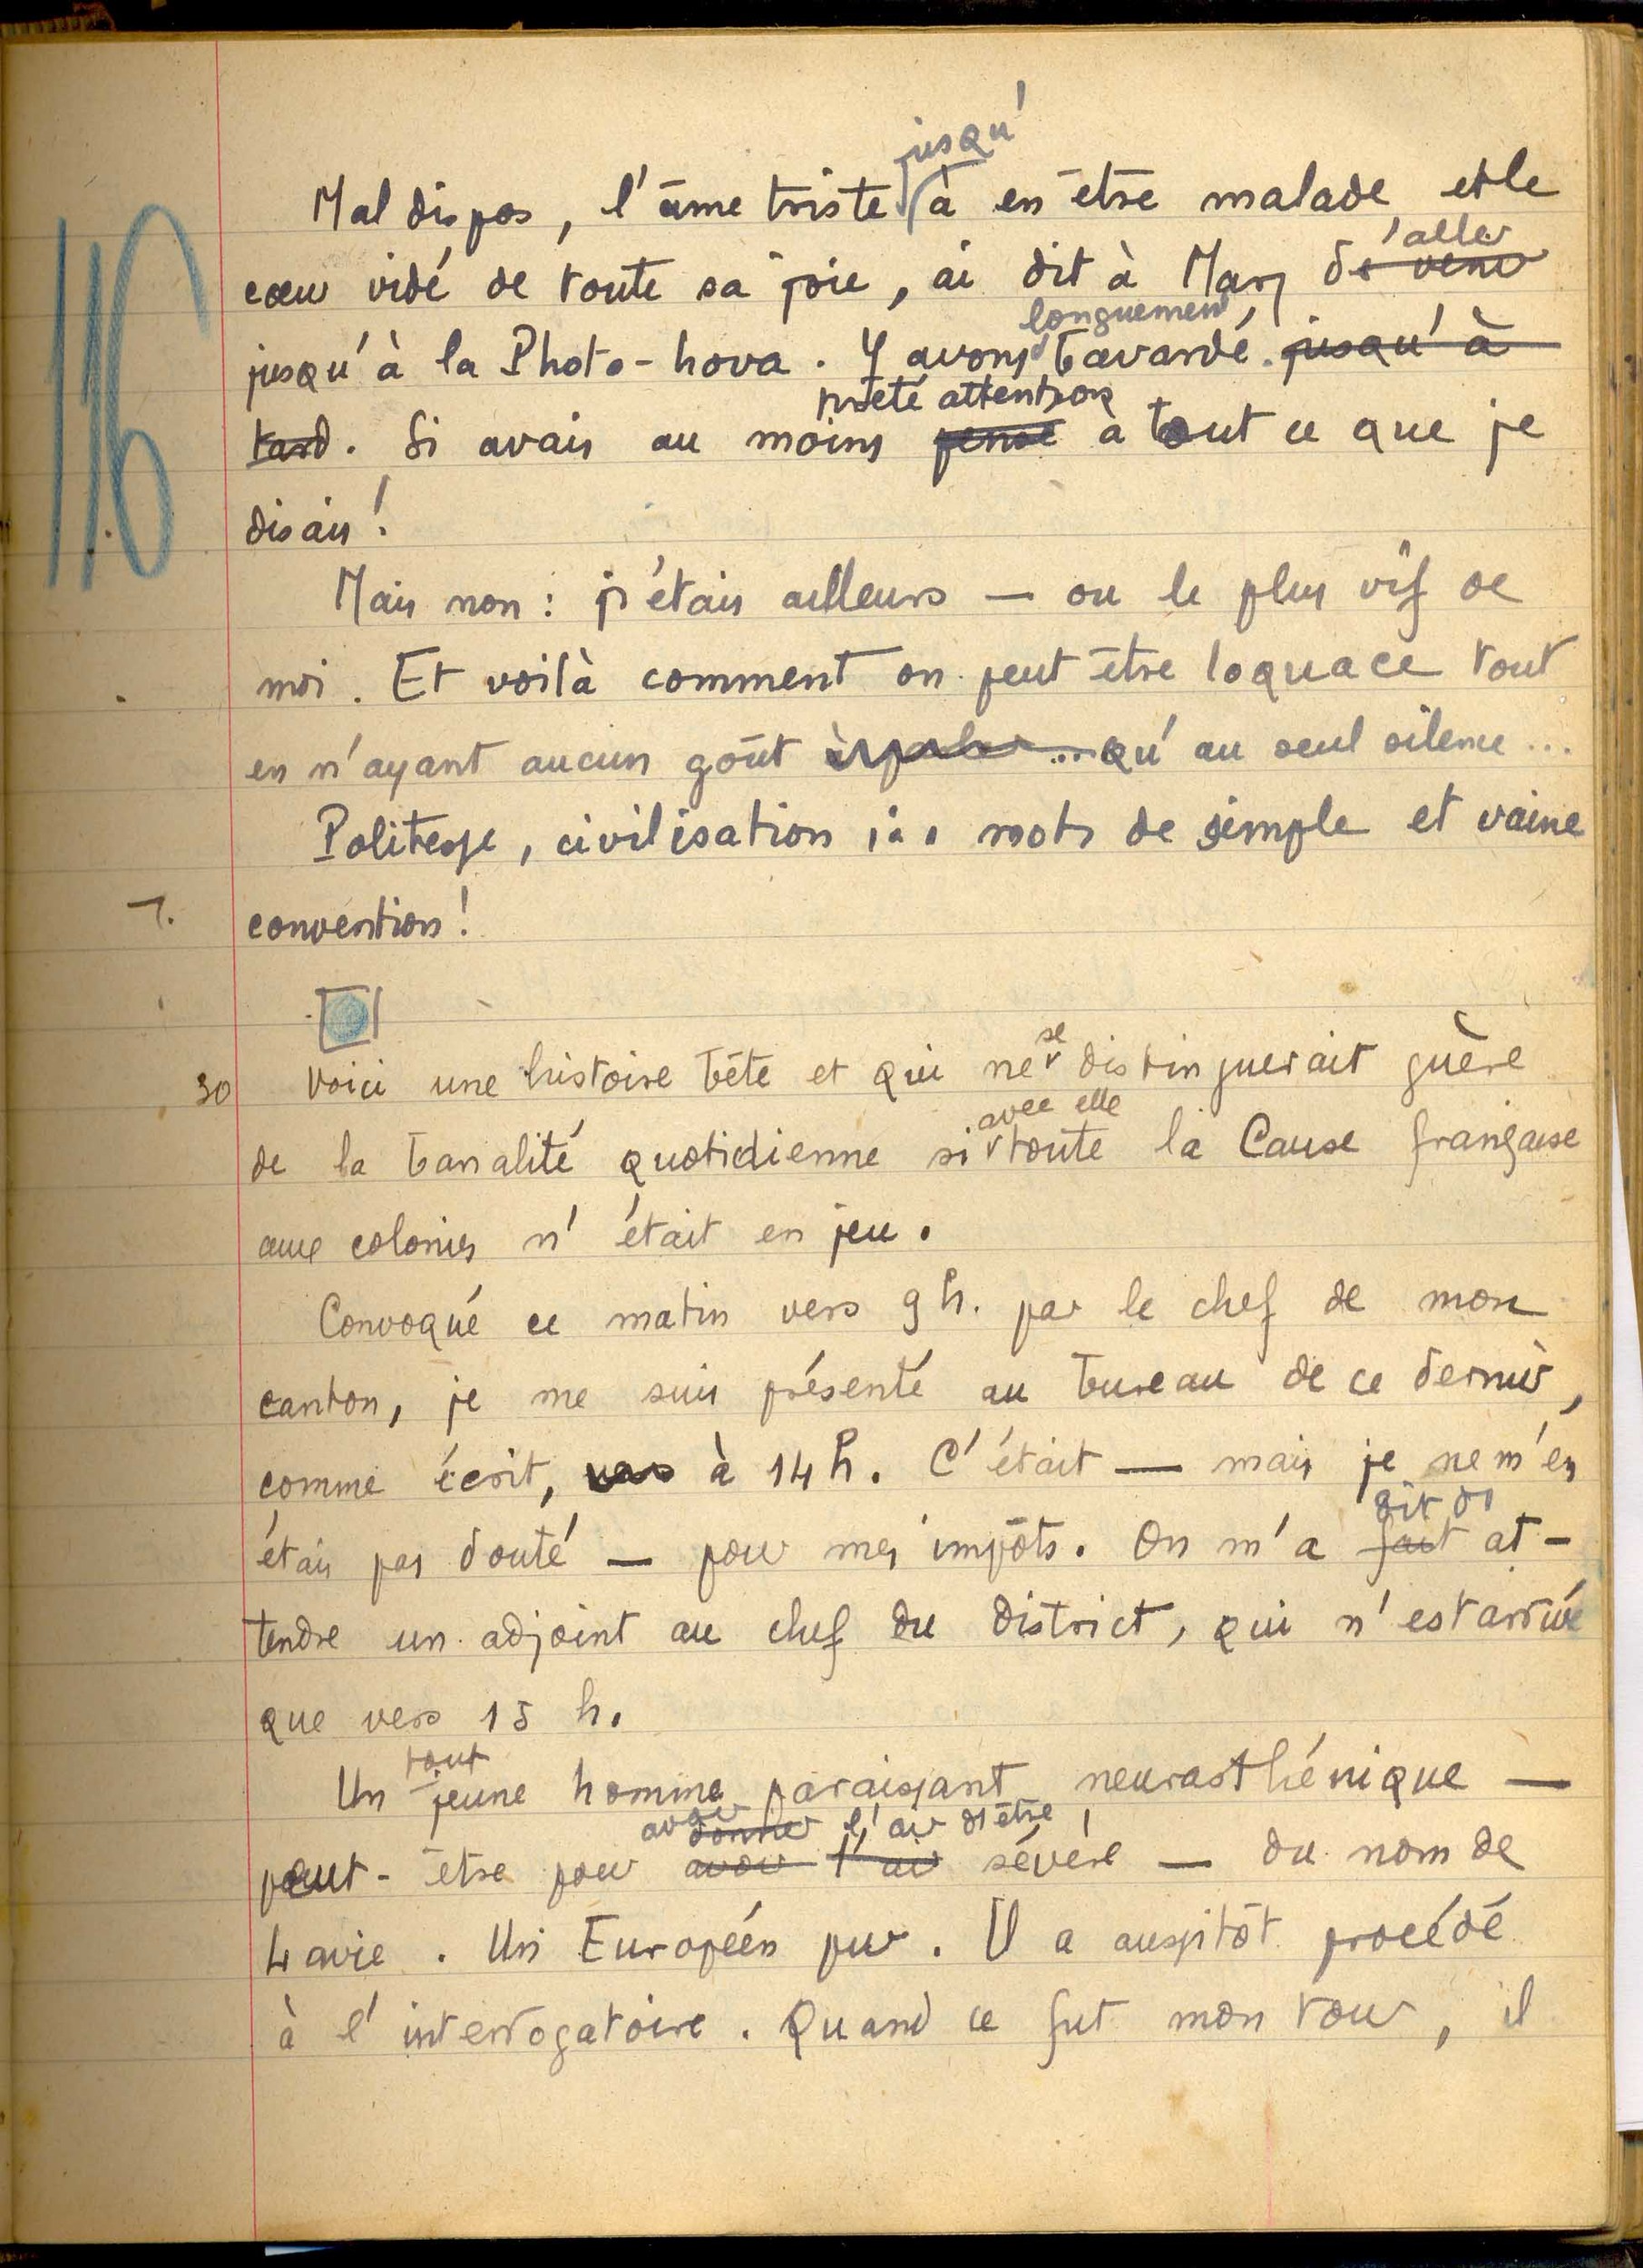 116
jusqu'
Mal dispos, l'âme triste à en être malade et le
'aller
cœur vidé de toute sa joie, ai dit à Mary de venir
longuement
jusqu'à la Photo-hova. Y avons bavardé. jusqu'à
prêté attention
tard. Si avais au moins pensé à tout ce que je
disais !
Mais non : j'étais ailleurs — ou le plus vif de
moi. Et voilà comment on peut être loquace tout
en n'ayant aucun goût à parler ... qu'au seul silence ...
Politesse, civilisation ... mots de simple et vaine
convention !
se
30 Voici une histoire bête et qui ne distinguerait guère
avec elle
de la banalité quotidienne si toute la Cause française
aux colonies n'était en jeu.
Convoqué ce matin vers 9 h. par le chef de mon
canton, je me suis présenté au bureau de ce dernier,
comme écrit, vers à 14 h. C'était — mais je ne m'en
dit d'
étais pas douté — pour mes impôts. On m'a fait at-
tendre un adjoint au chef du district, qui n'est arrivé
que vers 15 h.
tout
Un jeune homme paraissant neurasthénique —
avoir donner l'air d'être
peut-être pour avoir l'air sévère — du nom de
Havie. Un Européen pur. Il a aussitôt procédé
à l'interrogatoire. Quand ce fut mon tour, il